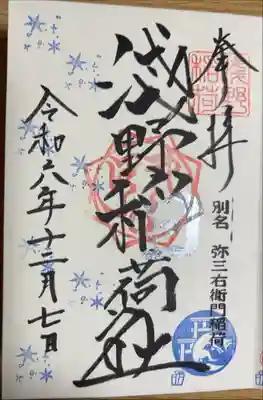 奉拝
別名 弥三右衛門稲荷
浅野稲荷社
令和六年十二月七日